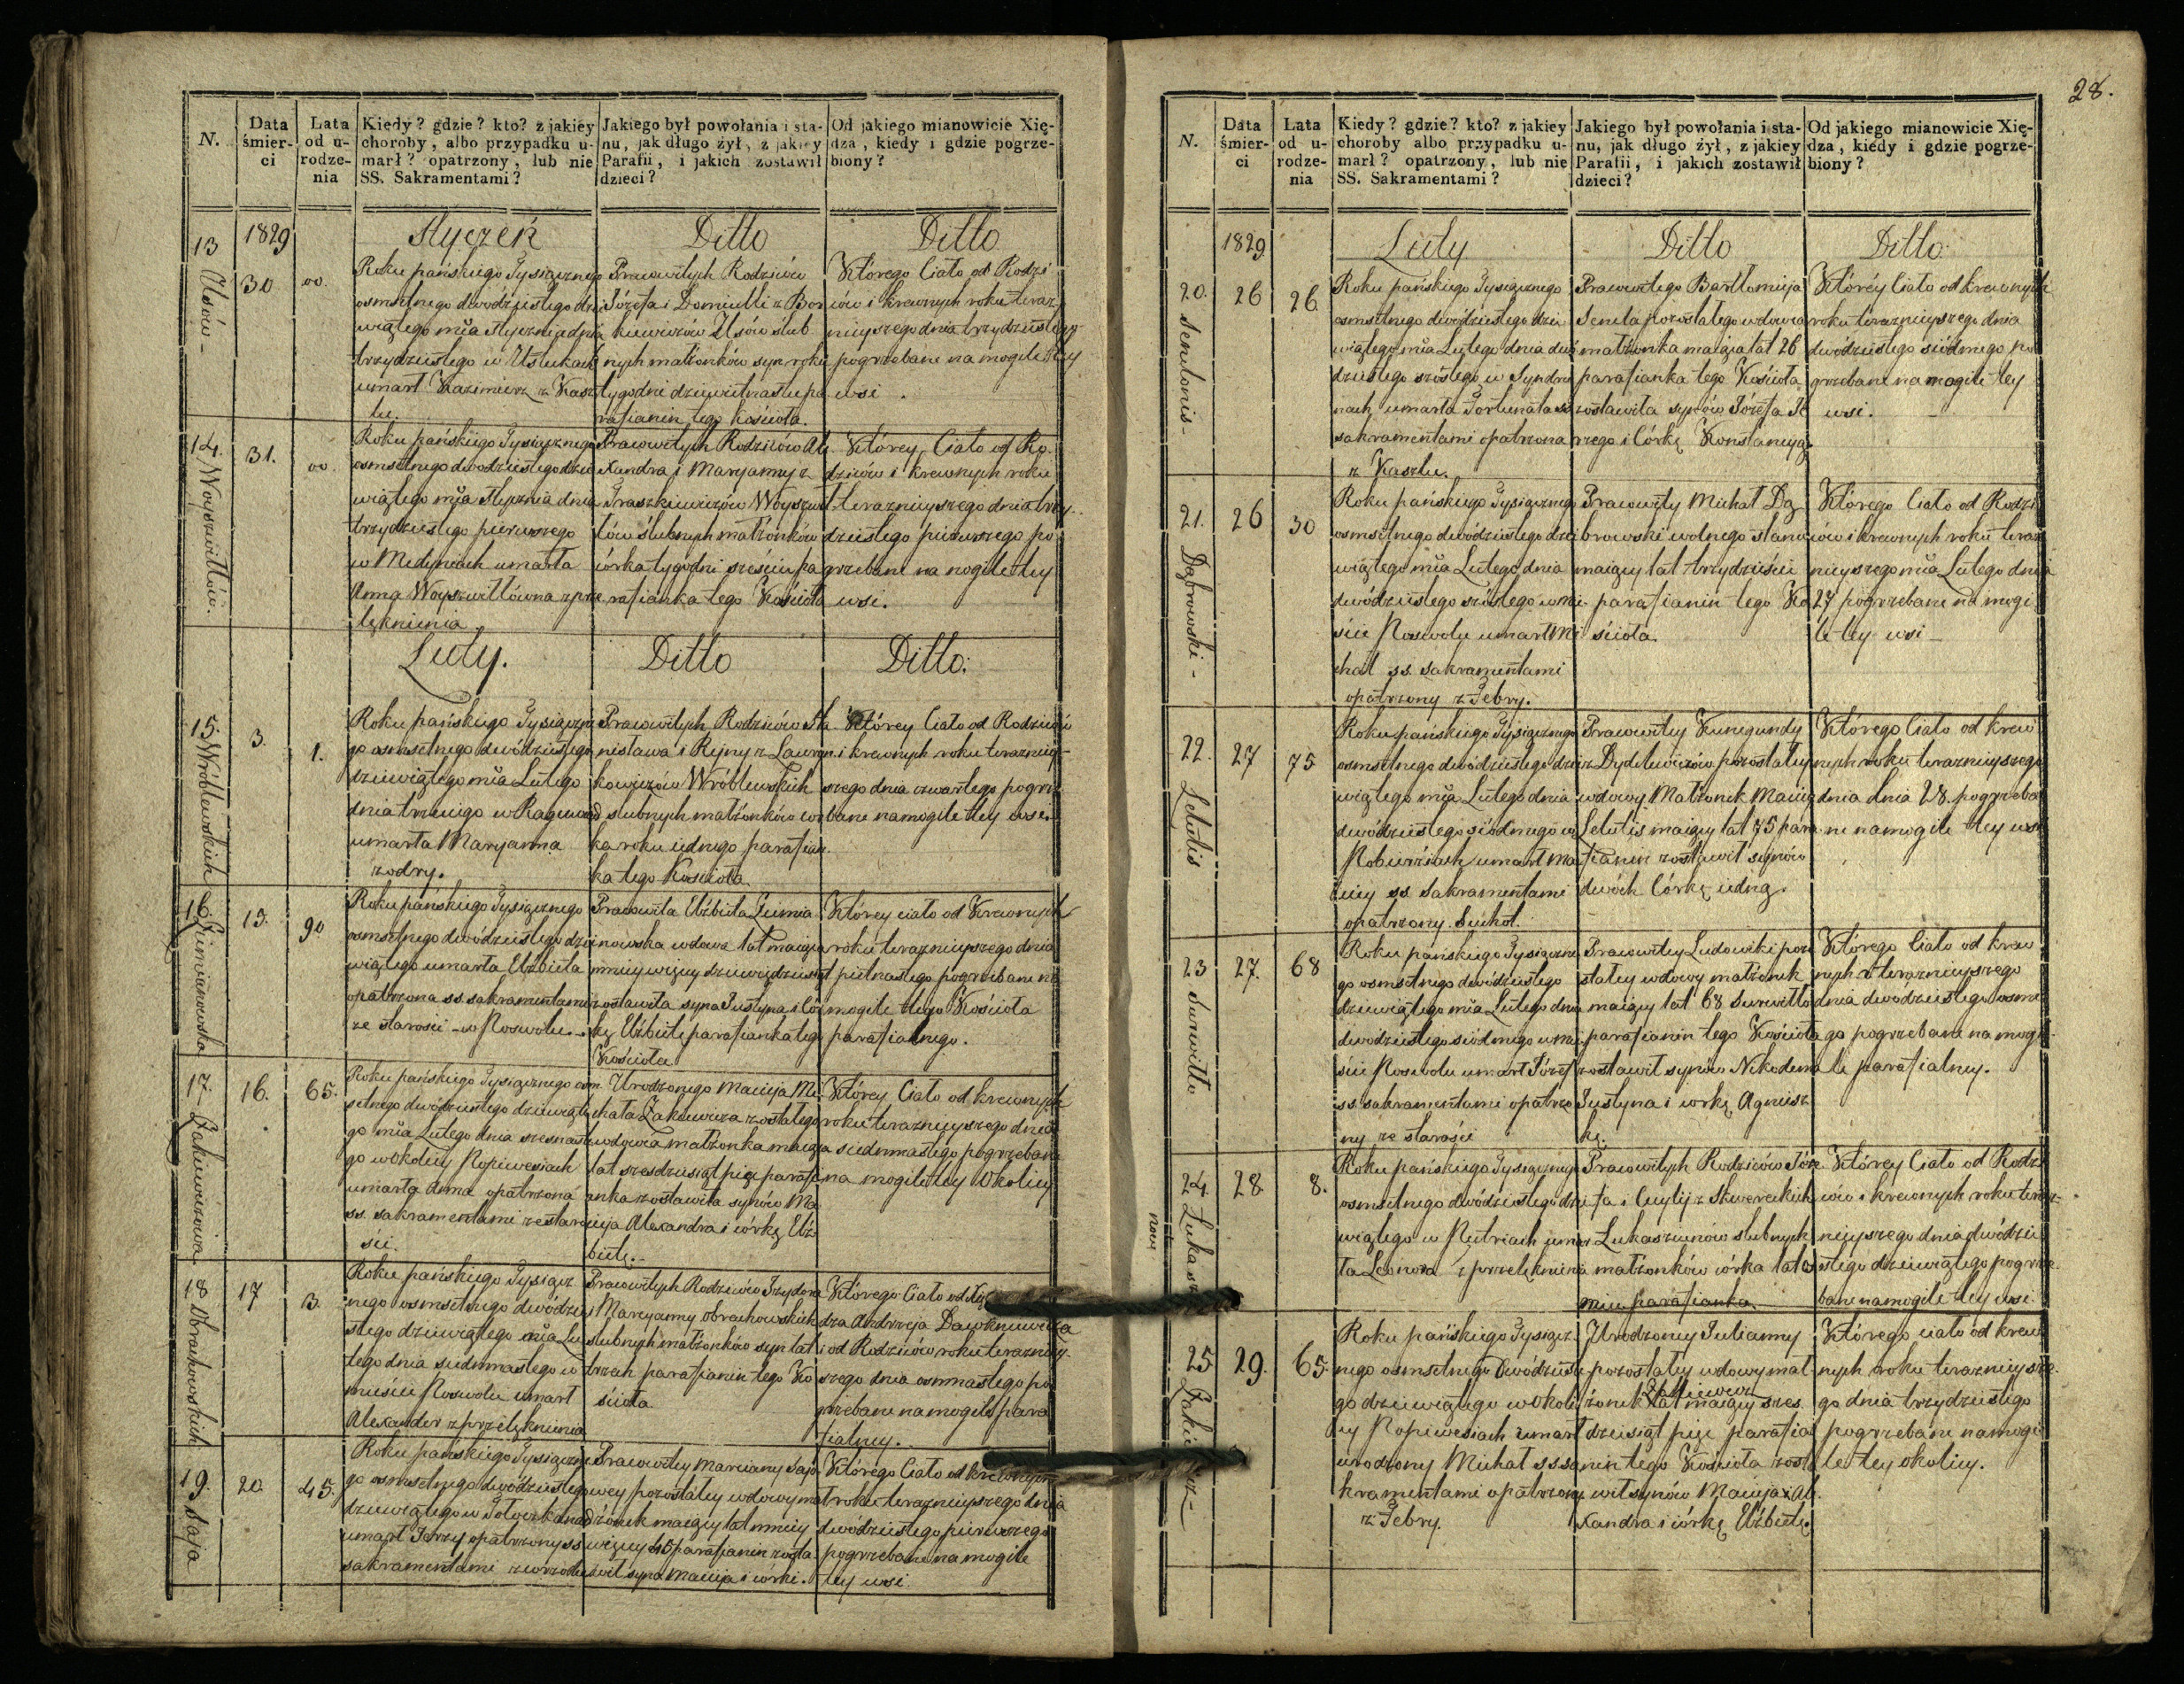 28.
N.
Data śmier- ci
Lata od u- rodze- nia
Kiedy? gdzie? kto? z jakiey
choroby, albo przypadku u-
marł? opatrzony, lub nie
SS. Sakramentami?
Jakiego był powołania i sta-
nu, jak długo żył, z jakiey
Parafii, i jakich zostawił
dzieci?
Od jakiego mianowicie Xię-
dza, kiedy i gdzie pogrze-
biony?
1829 Styczeń Ditto Ditto
13
Usów -
30
00.
Roku pańskiego Tysiącznego
osmsetnego dwódziestego dzi
wiątego mca stycznia dnia
trzydziestego w
umarł Kazimierz z Kasz
lu.
Prawowitych Rodziców
Józefa i Domicelli z Bor
kiewiczów Usów ślub
nych małżonków syn roku
tygodni dziewiętnastu pa
rafianin tego Kościoła.
Którego Ciało od Rodzi
ców i krewnych roku teraz
nieyszego dnia trzydziestego
pogrzebane na mogile tey
wsi.
14
Woyszwiłłów.
31.
00.
Roku pańskiego Tysiącznego
osmsetnego dwodziestego dzie
wiątego mca stycznia dnia
trzydziestego pierwszego
w Medyniach umarła
Anna Woyszwiłłówna z prze
lęknienia.
Prawowitych Rodziców Al
exandra i Maryanny z
Praszkiewiczów Woyszwił
łów ślubnych małżonków
córka tygodni sześciu pa
rafianka tego Kościoła
Którey Ciało od Ro
dziców i krewnych roku
teraznieyszego dnia trzy
dziestego pierwszego po
grzebane na mogile tey
wsi.
Luty. Ditto Ditto.
15
Wróblewskich
3.
1.
Roku pańskiego Tysiączne
go osmsetnego dwódziestego
dziewiątego mca Lutego
dnia trzeciego w
umarła Maryanna
z odry.
Prawowitych Rodziców Sta
nisława i Rejny z Lawryn
kowiczów Wróblewskich
slubnych małżonków cor
ka roku iednego parafian
ka tego Kościoła
Którey Ciało od Rodziców
i krewnych roku teraznieŷ
szego dnia czwartego pogrze
bane na mogile tey wsi.
16
Ziemianowska
13.
90
Roku pańskiego Tysiącznego
osmsetnego dwódziestego dzie
wiątego umarła Elżbieta
opatrzona ss. sakramentami
ze starosci w Poswolu.
Prawowita Elżbieta Ziemia
nowska wdowa lat maiąca
mniey więcey dziewiędziesiąt
zostawiła syna Justyna i Cór
kę Elżbietę parafianka tego
Kościoła
Którey ciało od Krewnych
roku terazniéyszego dnia
pietnastego pogrzebane na
mogile tego Kościoła
parafialnego.
17
Zakiewiczowa
16.
65.
Roku pańskiego Tysiącznego osm
setnego dwódziestego dziewiąte
go mca Lutego dnia szesnaste
go w Okolicy Kopiewesiach
umarła Anna opatrzona
ss. sakramentami ze staro
sci.
Urodzonego Macieja Mi
chała Zakiewicza zostałego
wdowca małżonka maiąca
lat szesdziesiąt pięć parafi
anka zostawiła synów Ma
cieja Alexandra i córkę Elż
bietę.
Którey Ciało od krewnych
roku terazniéyszego dnia
siedmnastego pogrzebane
na mogile tey Okolicy
18
Obrachowskich
17
3.
Roku pańskiego Tysiącz
nego osmsetnego dwódzie
stego dziewiątego mca Lu
tego dnia siedmnastego w
mieście Poswolu umarł
Alexander z przelęknienia
Prawowitych Rodziców Izydora
i Maryanny Obrachowskich
slubnych małżonków syn lat
trzech parafianin tego Ko
ścioła
Którego Ciało od
dza Andrzeja Dawkniewicza
i od Rodziców roku teraznieŷ
szego dnia osmnastego po
grzebane na mogile para
fialney.
19.
Saja
20
45.
Roku pańskiego Tysiączne
go osmsetnego dwódziestego
dziewiątego w
umarł Jerzy opatrzony ss
sakramentami z wrzodu
Prawowitey Marcianny Sajo
wey pozostałey wdowy mał
żonek maiący lat mniey
więcey 45 parafianin zosta
wił syna Macieja i córki.
Którego Ciało od krewnych
roku terazniéyszego dnia
dwódziestego pierwszego
pogrzebane na mogile
tey wsi.
N.
Data śmier- ci
Lata od u- rodze- nia
Kiedy? gdzie? kto? z jakiey
choroby albo przypadku u-
marł? opatrzony, lub nie
SS. Sakramentami?
Jakiego był powołania i sta-
nu, jak długo żył, z jakiey
Parafii, i jakich zostawił
dzieci?
Od jakiego mianowicie Xię-
dza, kiedy i gdzie pogrze-
biony?
1829 Luty Ditto Ditto.
20.
26
26
Roku pańskiego Tysiącznego
osmsetnego dwódziestego dzie
wiątego mca Lutego dnia dwó
dziestego szóstego w
nach umarła Fortunata ss
sakramentami opatrzona
z Kaszlu.
Prawowitego Bartłomieja
pozostałego wdowca
małżonka maiąca lat 26
parafianka tego Kościoła
zostawiła synów Józefa Je
rzego i Córkę Konstancyą
Którey Ciało od krewnych
roku terazniéyszego dnia
dwódziestego siódmego po
grzebane na mogile tey
wsi.
21.
Dąbrowski -
26
30
Roku pańskiego Tysiącznego
osmsetnego dwódziestego dzie
wiątego mca Lutego dnia
dwódziestego szóstego w mie
ście Poswolu umarł Mi
chał ss. sakramentami
opatrzony z Febry.
Prawowity Michał Dą
browski wolnego stanu
maiący lat trzydzieści
parafianin tego Ko
ścioła.
Którego Ciało od Rodzi
ców i krewnych roku teraz
nieyszego mca Lutego dnia
27 pogrzebane na mogi
le tey wsi
22.
Lelutis
27
75
Roku pańskiego Tysiącznego
osmsetnego dwódziestego dzie
wiątego mca Lutego dnia
dwódziestego siódmego w
umarł Ma
ciey ss. sakramentami
opatrzony. Suchot.
Prawowitey Kunegundy
z Dydelewiczów pozostałey
wdowy Małżonek Maciey
Lelutis maiący lat 75 para
fianin zostawił synów
dwóch Córkę iedną.
Którego Ciało od krew
nych roku terazniéyszego
dnia dnia 28. pogrzeba
ne na mogile tey wsi
23
Surwiłło
27.
68
Roku pańskiego Tysiączne
go osmsetnego dwódziestego
dziewiątego mca Lutego dnia
dwodziestego siódmego w mie
ście Poswolu umarł Józef
ss. sakramentami opatrzo
ny ze starości
Prawowitey Ludowiki pozo
stałey wdowy małżonek
maiący lat 68 Surwiłło
parafianin tego Kościoła
zostawił synów Nikodema
Justyna i córkę Agniesz
kę.
Którego Ciało od krew
nych r. terazniéyszego
dnia dwodziestego osme
go pogrzebane na mogi
le parafialney.
24
nowe
28.
8.
Roku pańskiego Tysiącznego
osmsetnego dwódziestego dzie
wiątego w umar
ła Leonora z przelęknienia
Prawowitych Rodziców Józe
fa i Cecylij z Skwereckich
Lukaszunów slubnych
małżonków córka lat
miu parafianka.
Którey Ciało od Rodzi
ców i krewnych roku teraz
nieyszego dnia dwódzie
stego dziewiątego pogrze
bane na mogile tey wsi
25
29.
65.
Roku pańskiego Tysiącz
nego osmsetnego Dwódzieste
go dziewiątego w Okoli
cy Kopiewesiach umarł
urodzony Michał ss sa
kramentami opatrzony
z Febry.
Urodzoney Julianny
pozostałey wdowy mał
żonek Zakiewicz lat maiący szes
dziesiąt pięć parafia
nin tego Kościoła zosta
wił synów Macieja i Al
exandra i córkę Elżbietę.
Którego ciało od krew
nych roku terazniéysze
go dnia trzydziestego
pogrzebane na mogi
le tey okolicy.